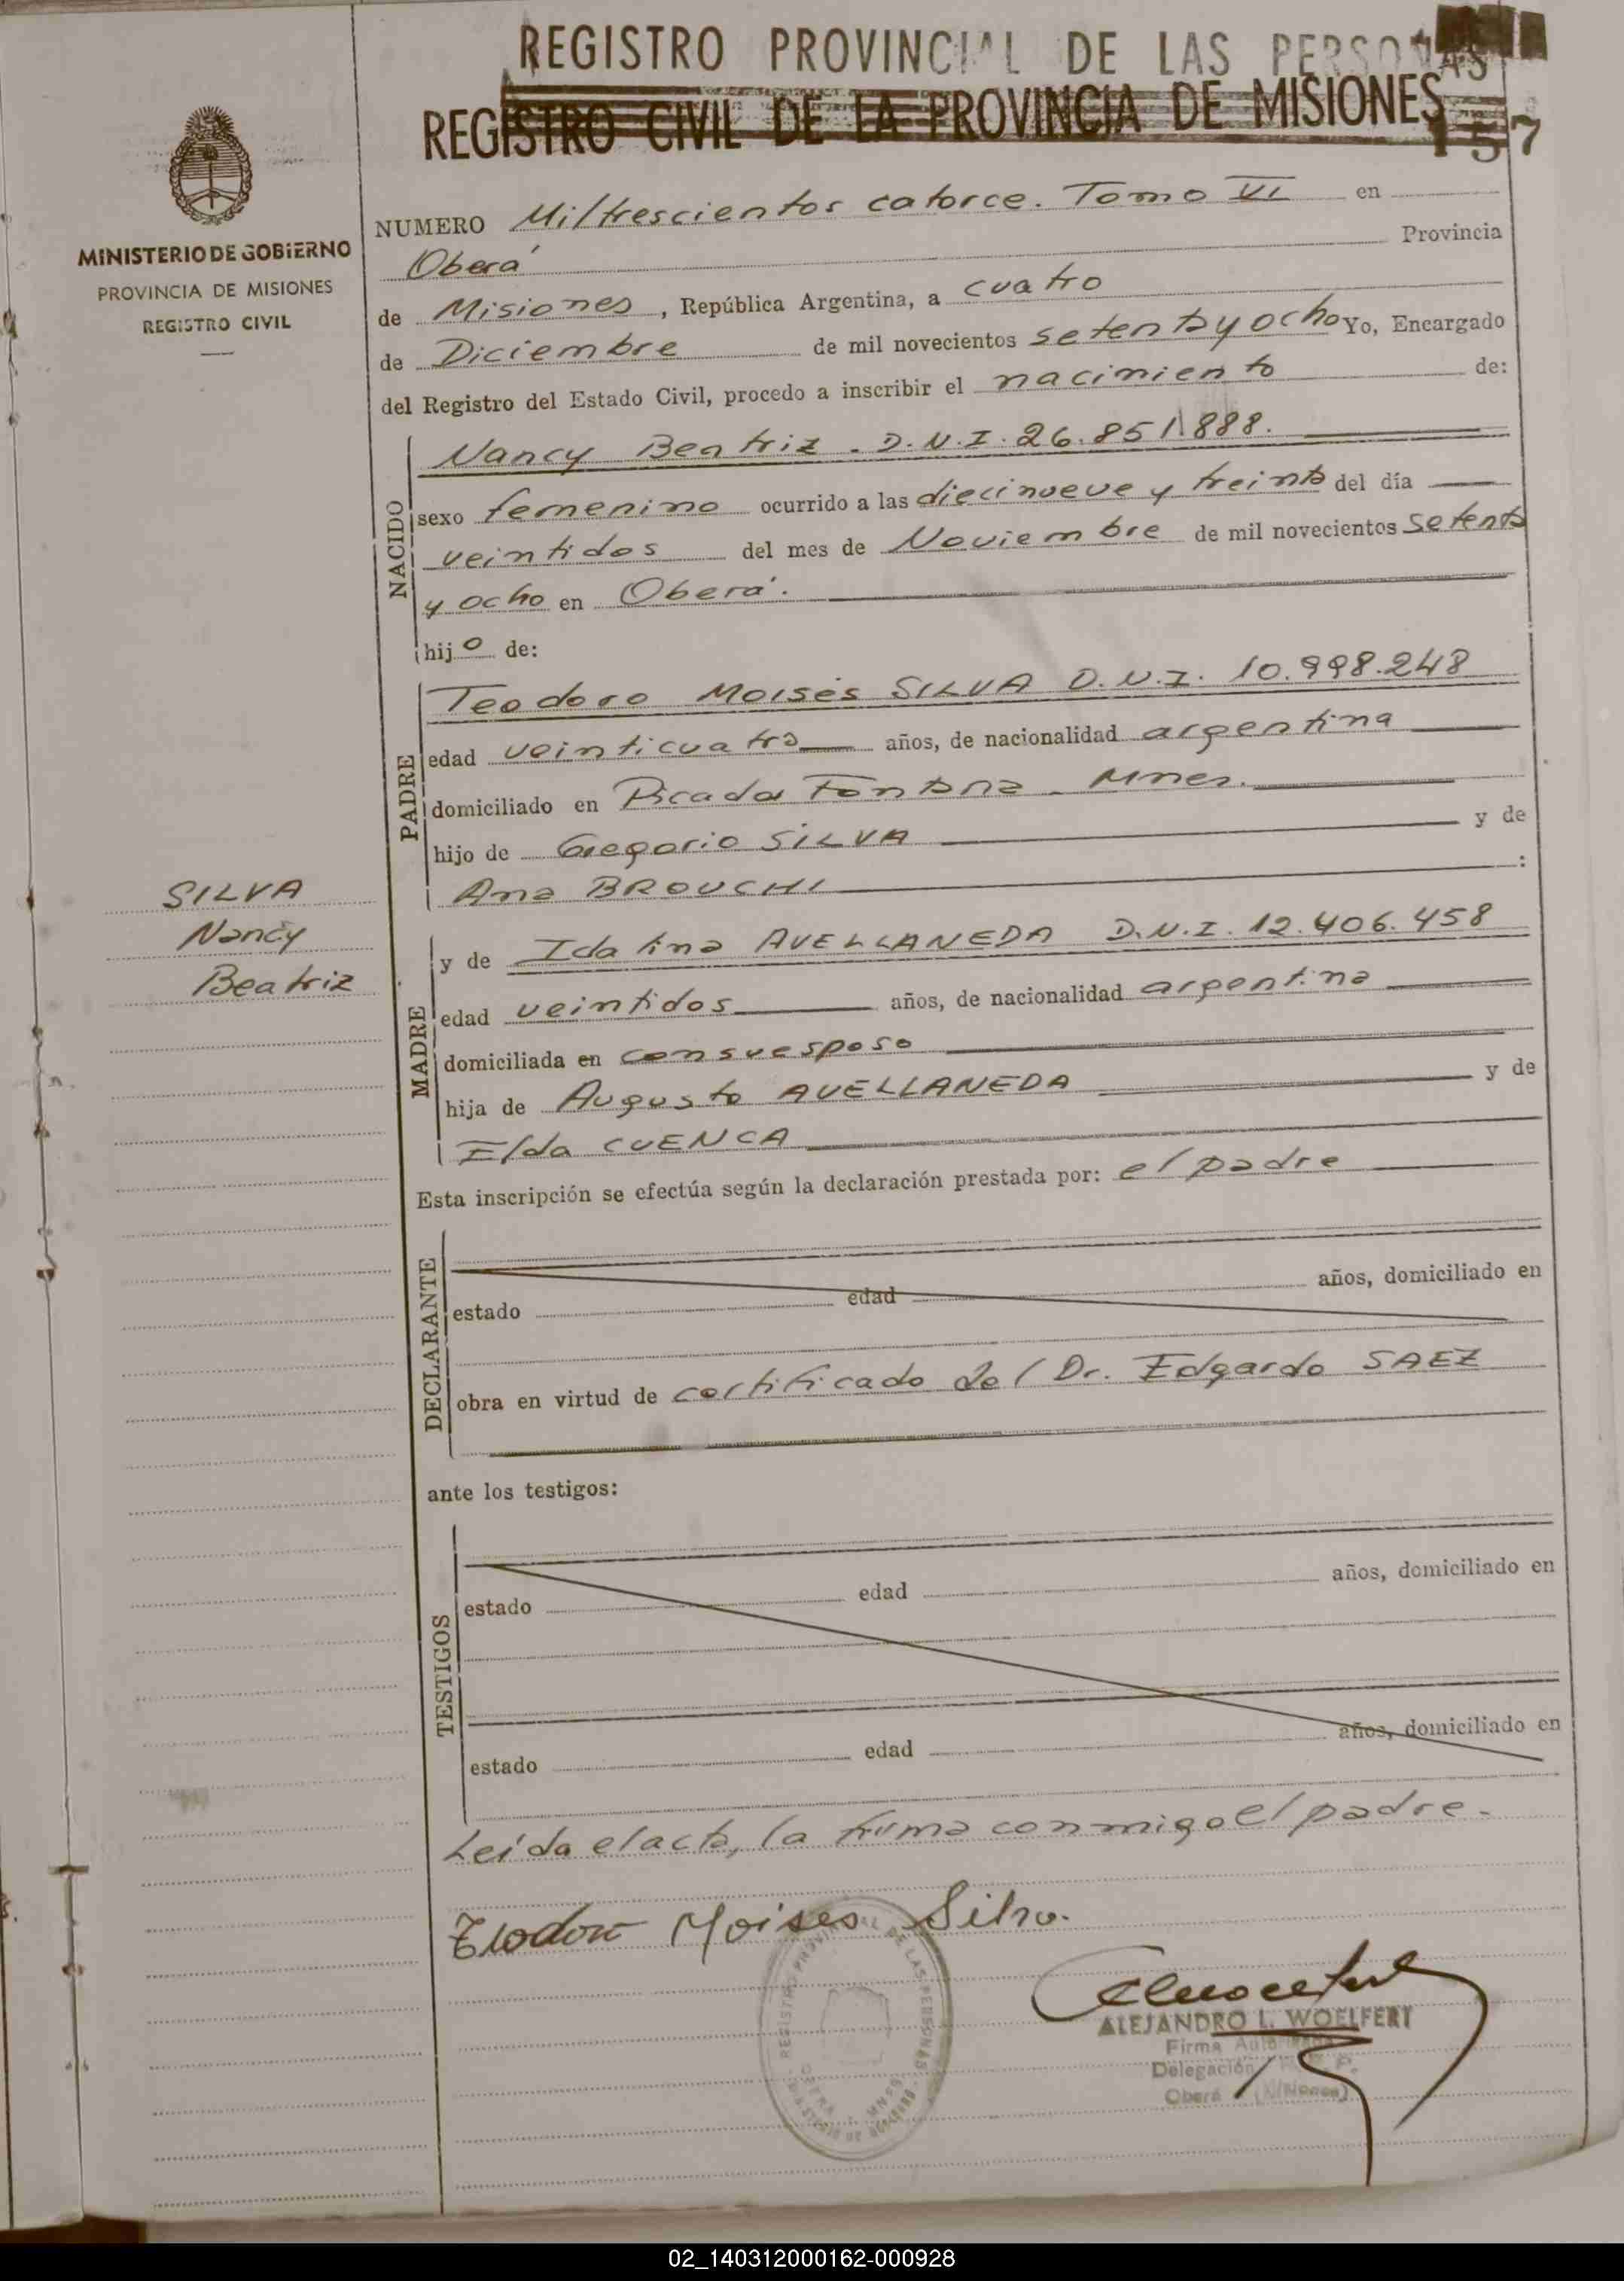 REGISTRO PROVINCIAL DE LAS PERSONAS
REGISTRO CIVIL DE LA PROVINCIA DE MISIONES
157
MINISTERIO DE GOBIERNO
PROVINCIA DE MISIONES
REGISTRO CIVIL
NUMERO Miltrescientos catorce. Tomo VI en
Oberá Provincia
de Misiones, República Argentina, a cuatro
de Diciembre de mil novecientos setenta y ocho Yo, Encargado
del Registro del Estado Civil, procedo a inscribir el nacimiento de:
NACIDO
Nancy Beatriz - D.N.I. 26.851.888.
sexo femenino ocurrido a las diecinueve y treinta del día
veintidos del mes de Noviembre de mil novecientos setenta
y ocho en Oberá.
hijo de:
PADRE
Teodoro Moisés SILVA D.N.I. 10.998.248
edad veinticuatro años, de nacionalidad argentina
domiciliado en Picada Fontana - Mnes.
hijo de Gregorio SILVA y de
Ana BROUCHI :
SILVA
Nancy
Beatriz
MADRE
y de Idalina AVELLANEDA D.N.I. 12.406.458
edad veintidos años, de nacionalidad argentina
domiciliada en con su esposo
hija de Augusto AVELLANEDA y de
Elda CUENCA
Esta inscripción se efectúa según la declaración prestada por: el padre
DECLARANTE
estado edad años, domiciliado en
obra en virtud de certificado del Dr. Edgardo SAEZ
ante los testigos:
TESTIGOS
estado edad años, domiciliado en
estado edad años, domiciliado en
Leída el acta, la firma conmigo el padre.
Teodoro Moises Silva.
REGISTRO PROVINCIAL DE LAS PERSONAS
ALEJANDRO L. WOELFERT
Firma Autorizada
Delegación R. P. P.
Oberá (Misiones)
02_140312000162-000928